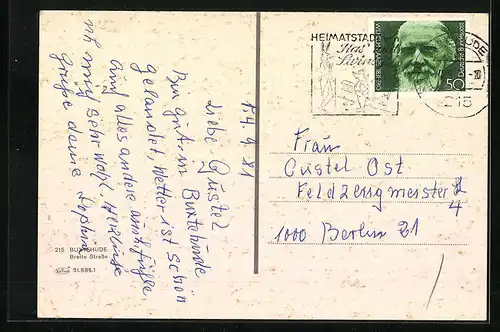 14.4.81
Liebe Gustel
Bin gut in Buxtehude
gelandet, Wetter ist schön
und alles andere auch fühle
mich sehr wohl. Herzliche
Grüße deine
215 BUXTEHUDE
Breite Straße
31.686.1
HEIMATSTADT
Has'
Swin
UDE
215
50
Frau
Gustel Ost
Feldzeugmeister
4
1000 Berlin 21